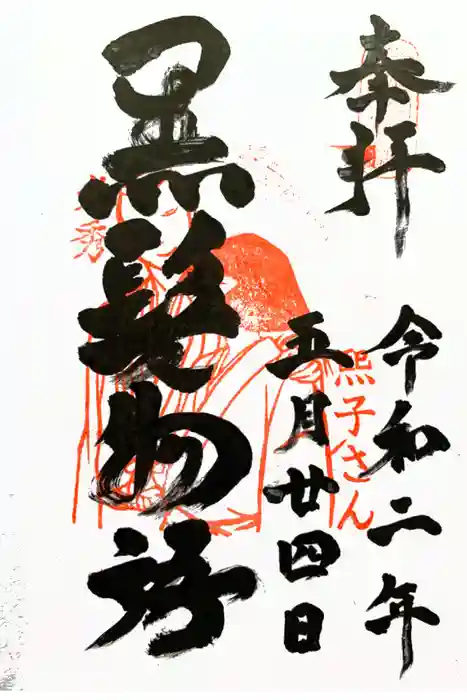 奉拝
令和二年
五月廿四日
黒髪物語
熈子さん